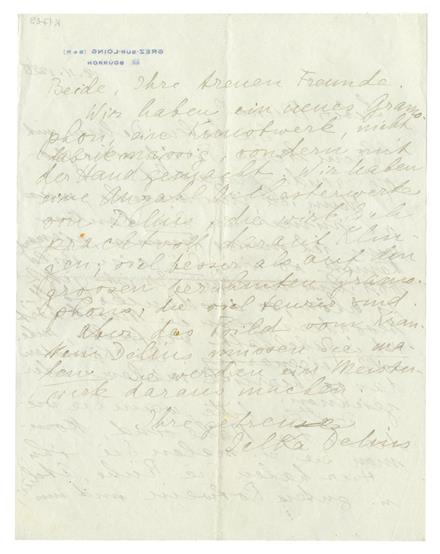 GREZ-SUR-LOING (S&M)
BOURRON
Beide, Ihre treuen Freunde.
Wir haben ein neues Gramo-
phon, ein Kunstwerk, nicht
fabrikmässig, sondern mit
der Hand gemacht. Wir haben
eine Anzahl Orchesterwerke
von Delius, die wirklich
prachtvoll darauf klin-
gen; viel besser als auf den
grossen berühmten Gramo-
phons, die viel teurer sind.
Aber das Bild vom kran-
ken Delius müssen Sie ma-
len, Sie werden ein Meister-
werk daraus machen
Ihre getreue
Jelka Delius